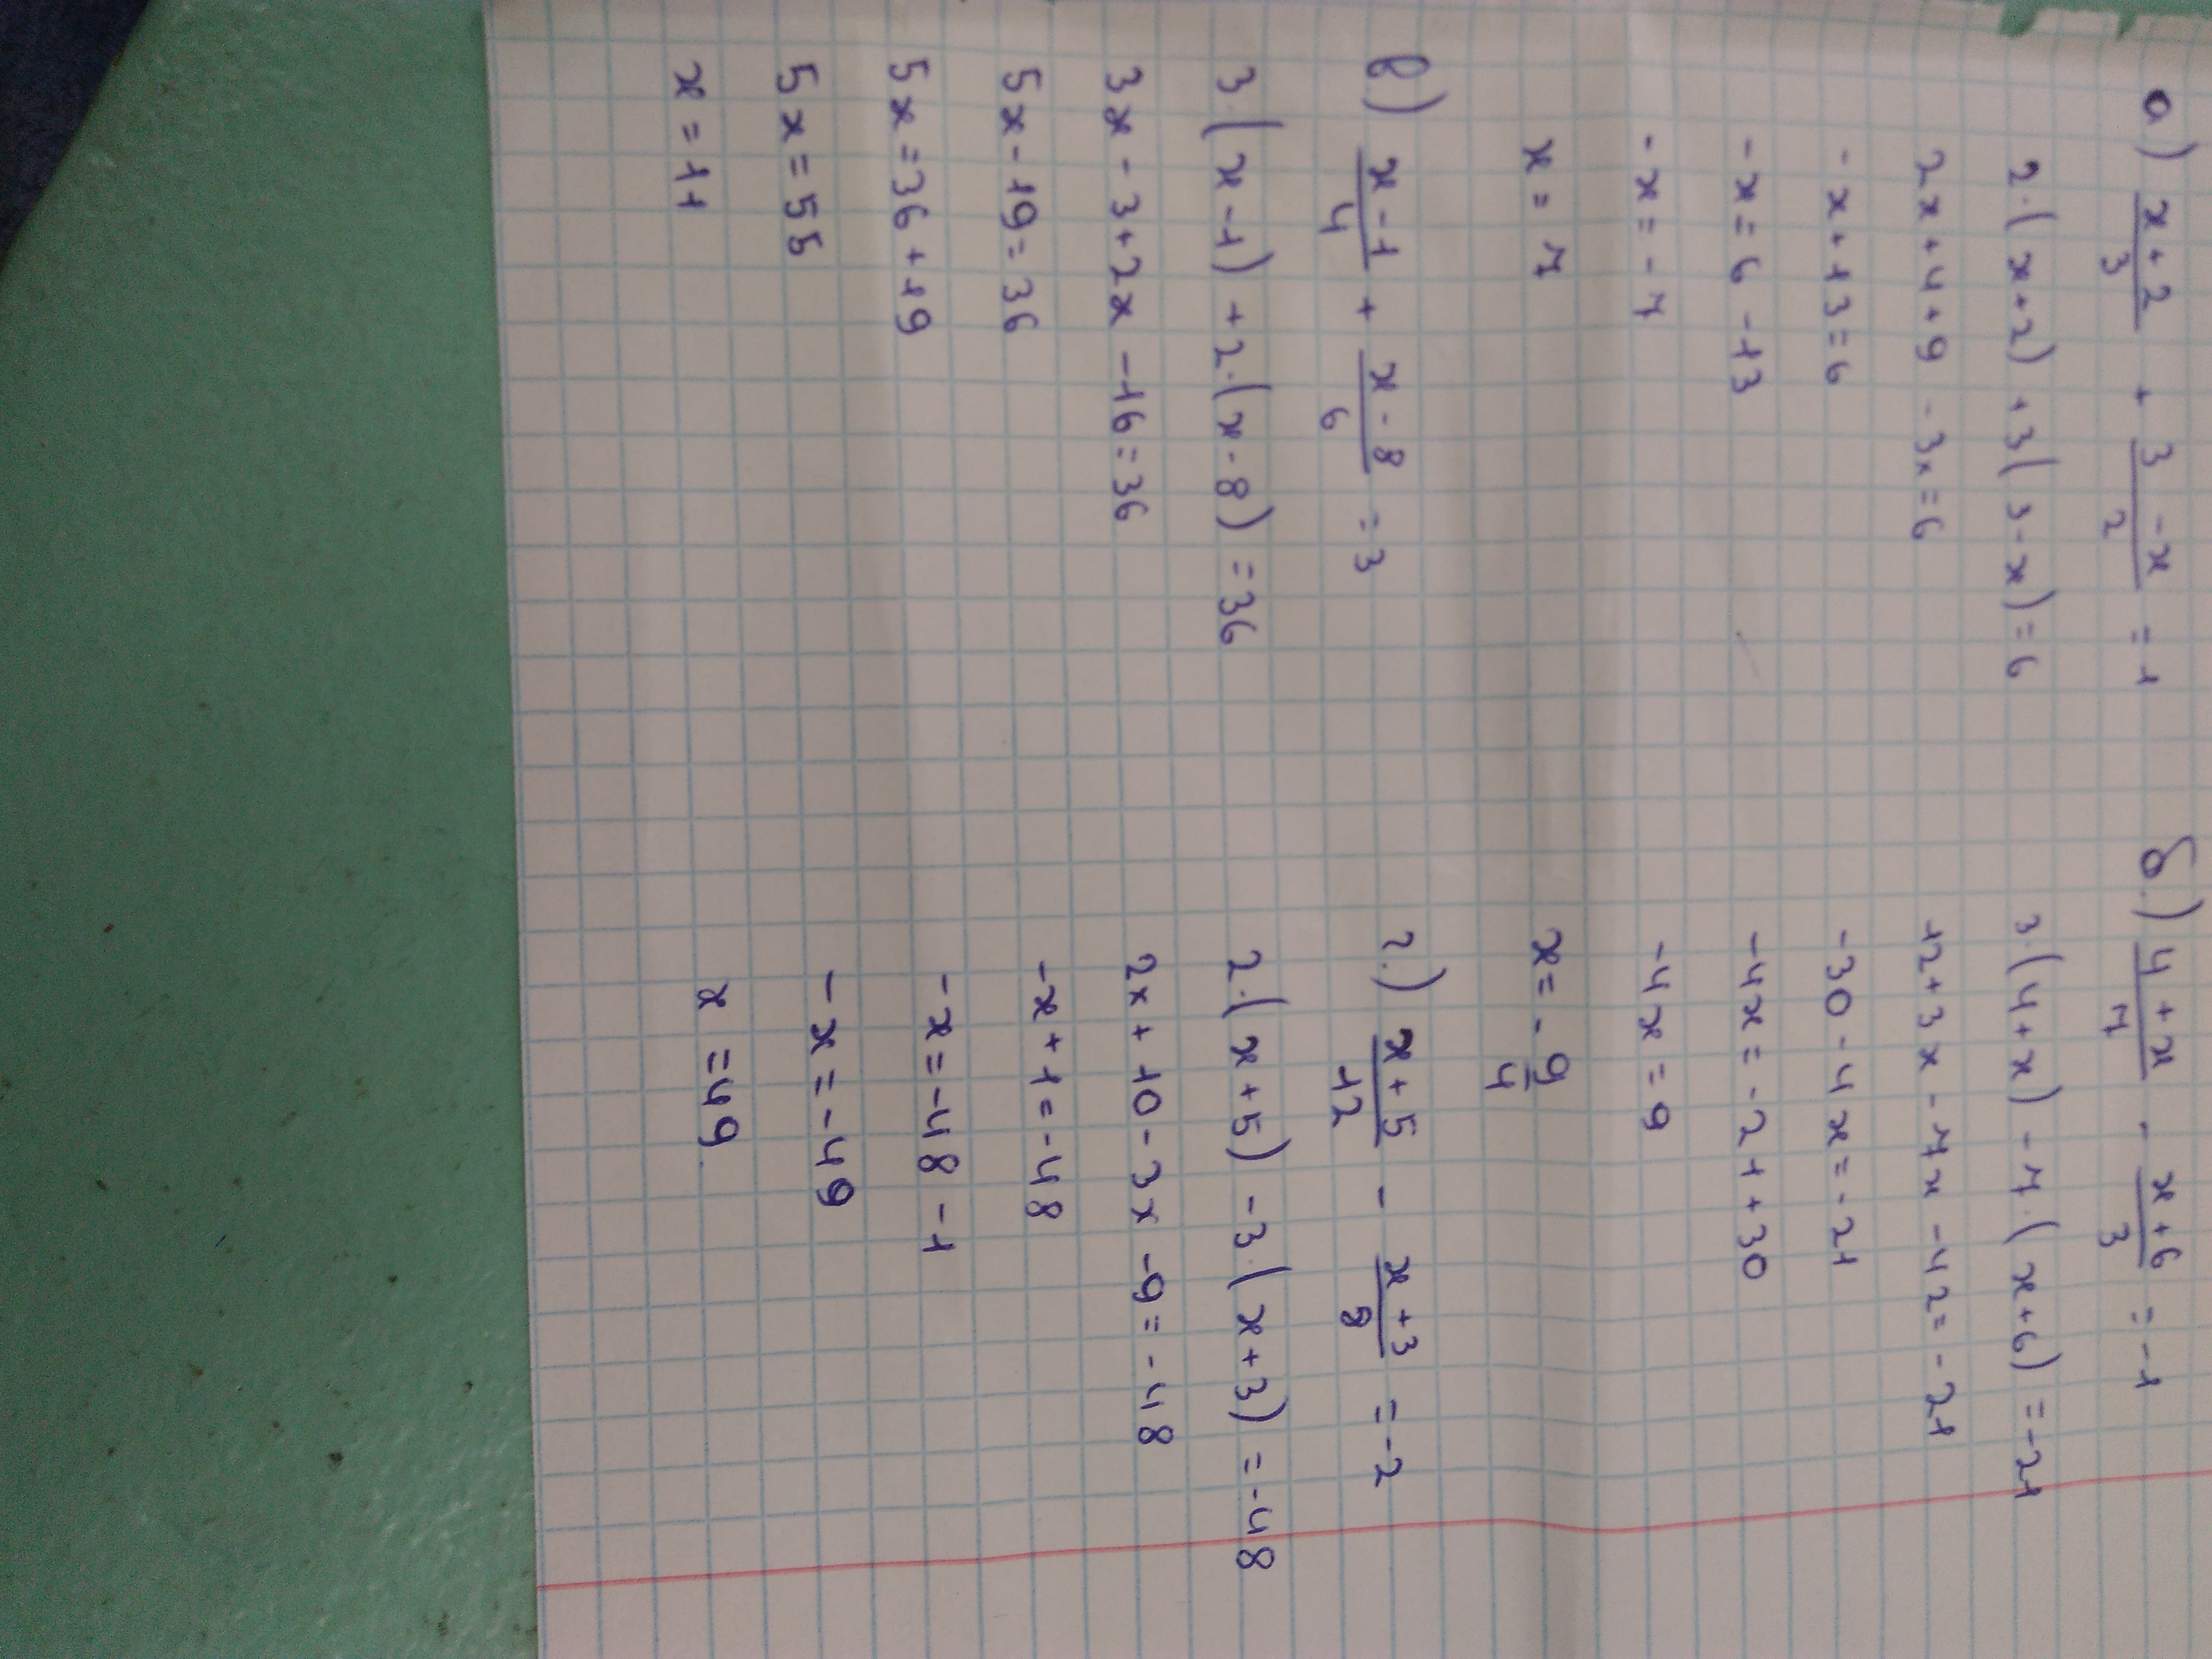 а) x+2/3 + 3-x/2 = 1
2·(x+2)+3(3-x)=6
2x+4+9-3x=6
-x+13=6
-x=6-13
-x=-7
x=7
б.) 4+x/7 - x+6/3 = -1
3·(4+x)-7·(x+6)=-21
12+3x-7x-42=-21
-30-4x=-21
-4x=-21+30
-4x=9
x=-9/4
в) x-1/4 + x-8/6 = 3
3·(x-1)+2·(x-8)=36
3x-3+2x-16=36
5x-19=36
5x=36+19
5x=55
x=11
г.) x+5/12 - x+3/8 = -2
2·(x+5)-3·(x+3)=-48
2x+10-3x-9=-48
-x+1=-48
-x=-48-1
-x=-49
x=49